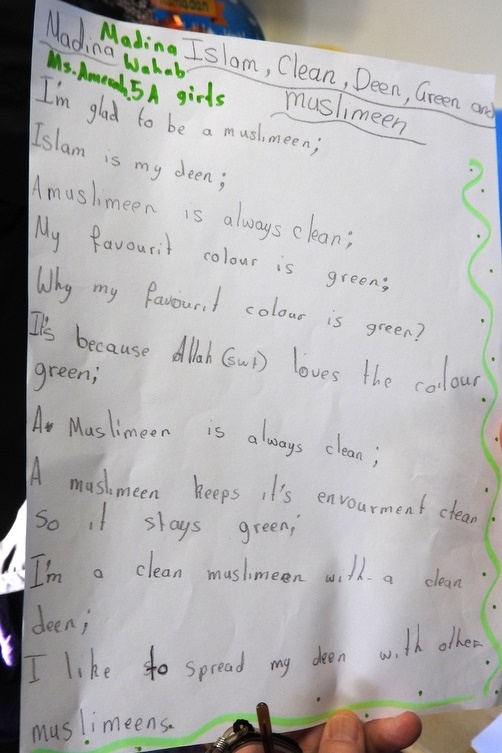 Madina Madina Islam, Clean, Deen, Green and
Wahab muslimeen
Ms. Ameerah, 5A girls
I'm glad to be a muslimeen;
Islam is my deen;
A muslimeen is always clean;
My favourit colour is green;
Why my favourit colour is green?
It's because Allah (swt) loves the colour
green;
A Muslimeen is always clean;
A muslimeen keeps it's envourment clean
so it stays green;
I'm a clean muslimeen with a clean
deen;
I like to spread my deen with other
muslimeens.